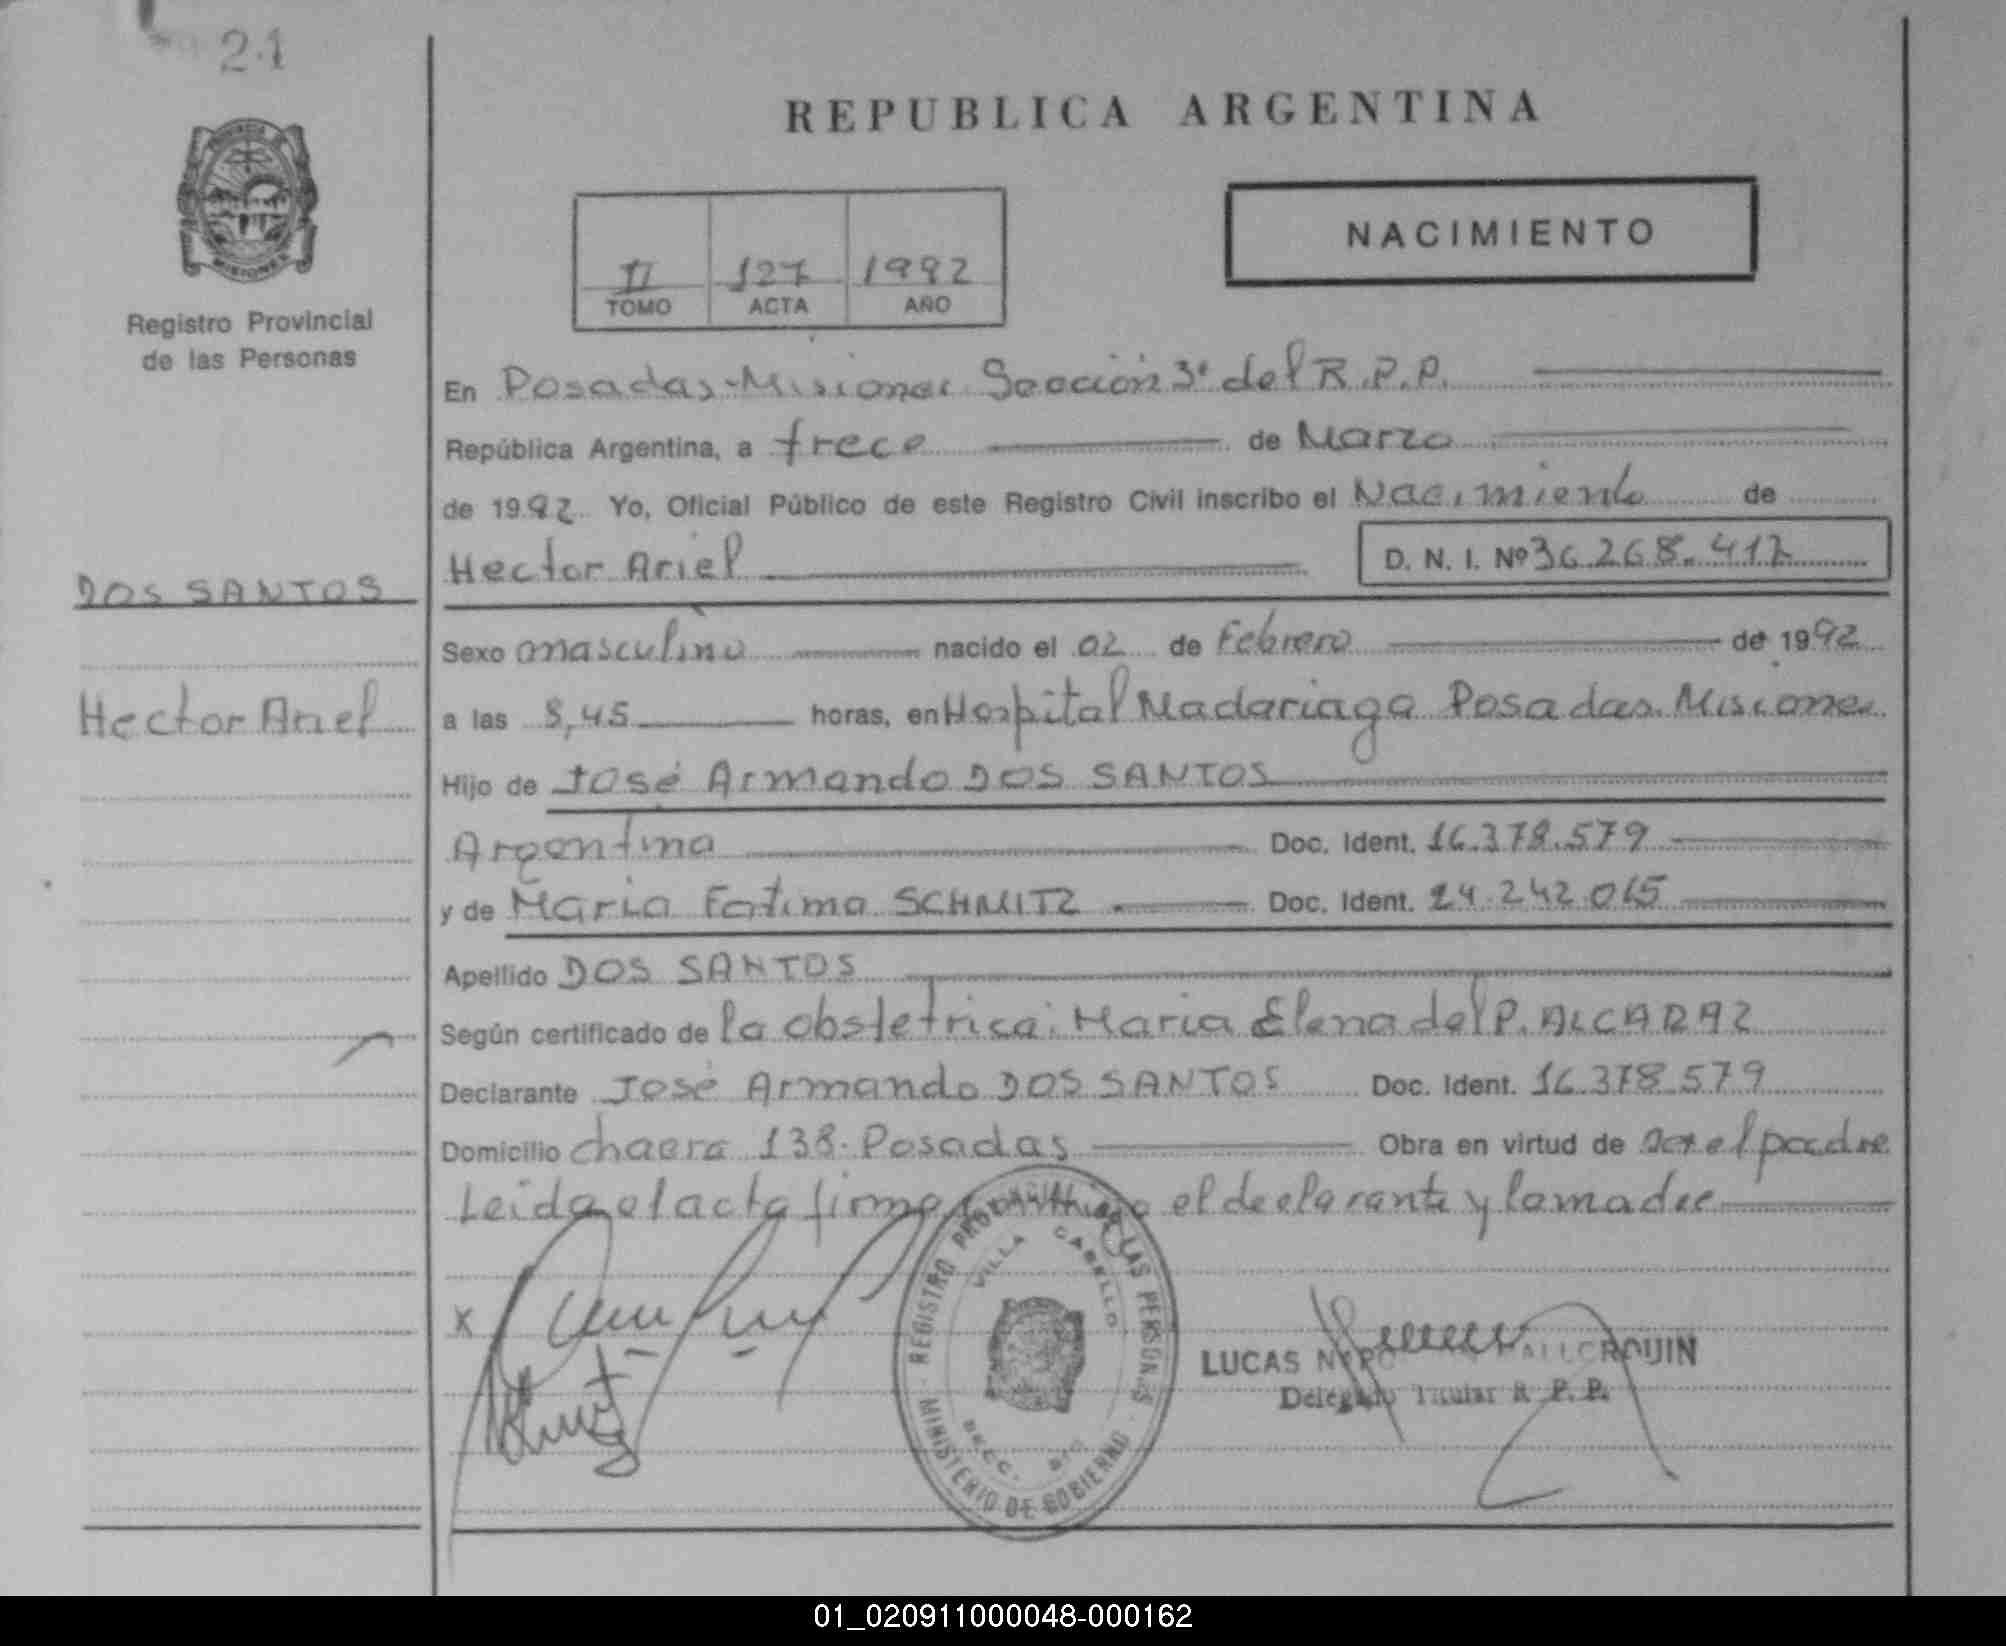 21
REPUBLICA ARGENTINA
NACIMIENTO
II 127 1992
TOMO ACTA AÑO
PROVINCIA DE
MISIONES
Registro Provincial
de las Personas
En Posadas-Misiones Sección 3ª del R.P.P.
República Argentina, a trece de Marzo
de 1992 Yo, Oficial Público de este Registro Civil inscribo el Nacimiento de
Hector Ariel D. N. I. Nº 36.268.417
DOS SANTOS
Sexo masculino nacido el 02 de Febrero de 1992
Hector Ariel
a las 8,45 horas, en Hospital Madariaga Posadas. Misiones
Hijo de José Armando DOS SANTOS
Argentina Doc. Ident. 16.378.579
y de Maria Fatima SCHMITZ Doc. Ident. 24.242.065
Apellido DOS SANTOS
Según certificado de la obstetrica: Maria Elena del P. ALCARAZ
Declarante José Armando DOS SANTOS Doc. Ident. 16.378.579
Domicilio chacra 138. Posadas Obra en virtud de ser el padre
Leida el acta firma conmigo el declarante y la madre
REGISTRO PROVINCIAL DE LAS PERSONAS
VILLA CABELLO
MINISTERIO DE GOBIERNO
X
LUCAS
Delegado Titular R. P. P.
01_020911000048-000162